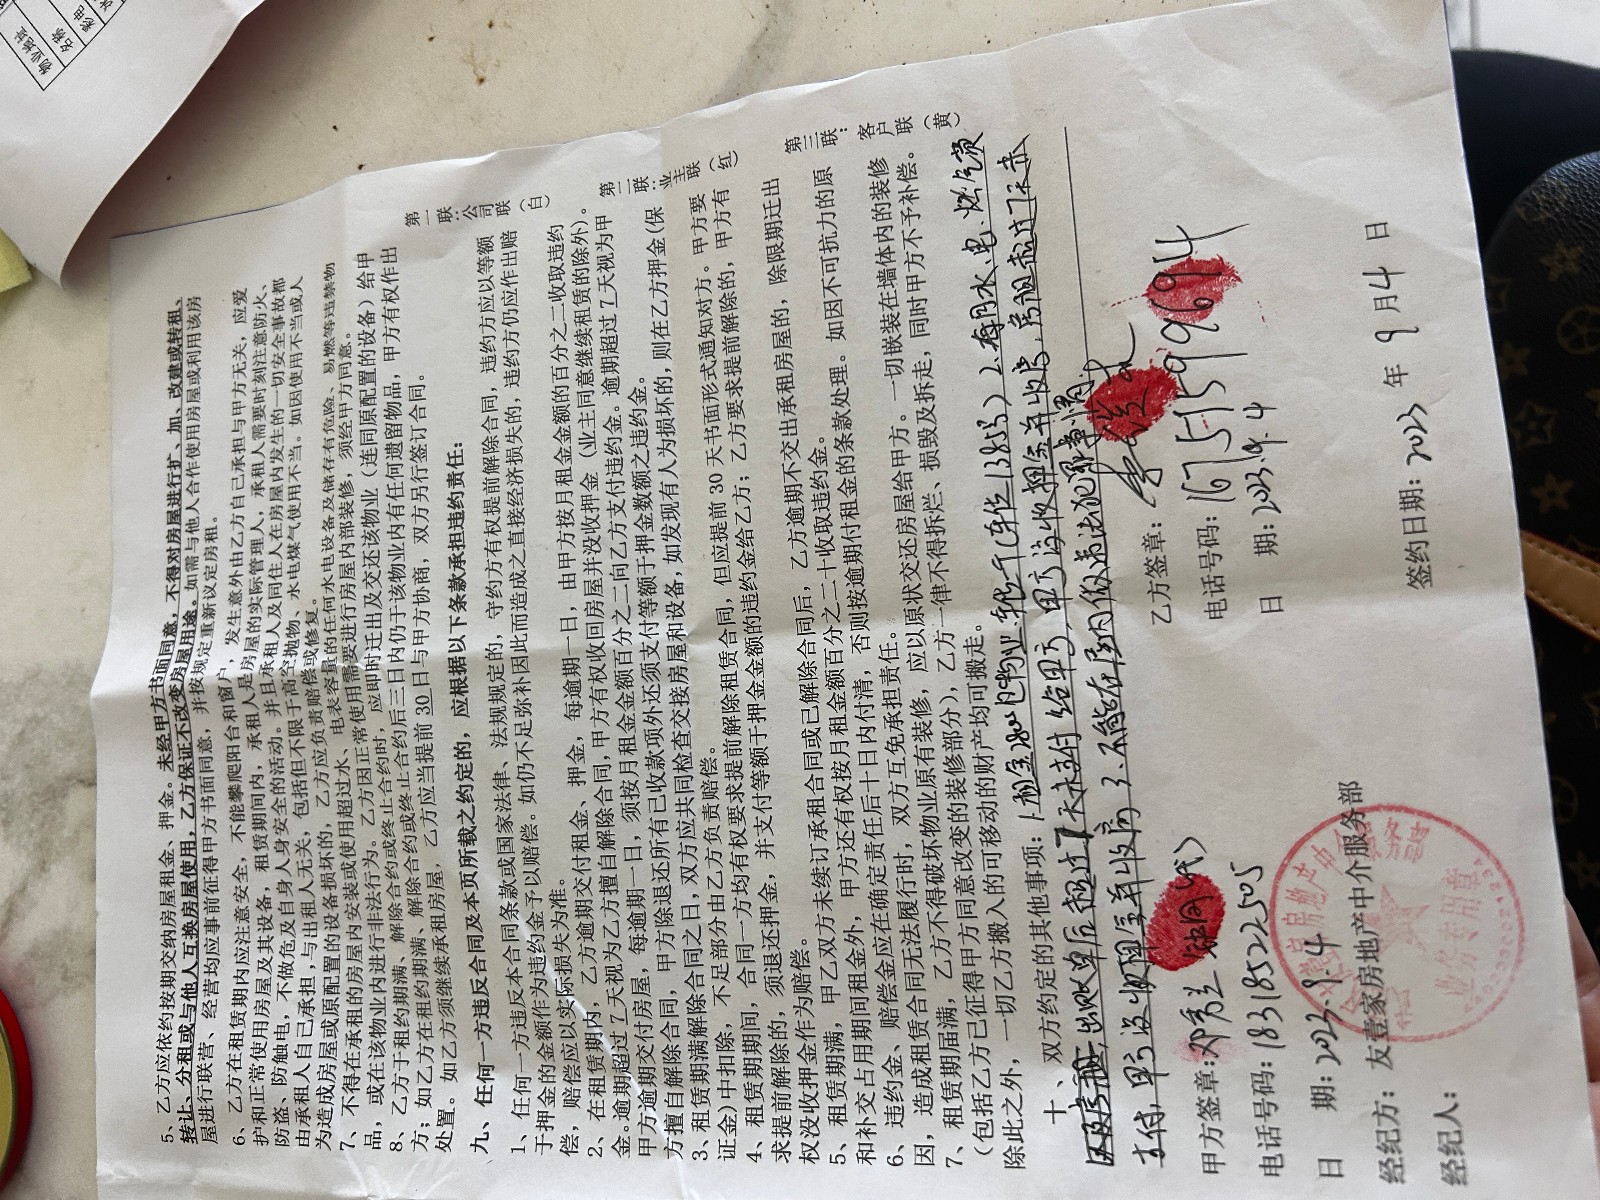 物业地址
名称
彩电
5、乙方应依约按期交纳房屋租金、押金。未经甲方书面同意，不得对房屋进行扩、加、改建或转租、
转让、分租或与他人互换房屋使用，乙方保证不改变房屋用途。如需与他人合作使用房屋或利用该房
屋进行联营、经营均应事前征得甲方书面同意，并按规定重新议定房租。
6、乙方在租赁期内应注意安全，不能攀爬阳台和窗户，发生意外由乙方自己承担与甲方无关，应爱
护和正常使用房屋及其设备，租赁期间内，承租人是房屋的实际管理人，承租人需要时刻注意防火、
防盗、防触电，不做危及自身人身安全的活动。并且承租人及同住人在房屋内发生的一切安全事故都
由承租人自己承担，与出租人无关，包括但不限于高空抛物、水电煤气使用不当。如因使用不当或人
为造成房屋或原配置的设备损坏的，乙方应负责赔偿或修复。
7、不得在承租的房屋内安装或使用超过水、电表容量的任何水电设备及储存有危险、易燃等违禁物
品，或在该物业内进行非法行为。乙方因正常使用需要进行房屋内部装修，须经甲方同意。
8、乙方于租约期满、解除合约或终止合约时，应即时迁出及交还该物业（连同原配置的设备）给甲
方；如乙方在租约期满、解除合约或终止合约后三日内仍于该物业内有任何遗留物品，甲方有权作出
处置。如乙方须继续承租房屋，乙方应当提前 30 日与甲方协商，双方另行签订合同。
九、任何一方违反合同及本页所载之约定的，应根据以下条款承担违约责任：
1、任何一方违反本合同条款或国家法律、法规规定的，守约方有权提前解除合同，违约方应以等额
于押金的金额作为违约金予以赔偿。如仍不足弥补因此而造成之直接经济损失的，违约方仍应作出赔
偿，赔偿应以实际损失为准。
2、在租赁期内，乙方逾期交付租金、押金，每逾期一日，由甲方按月租金金额的百分之二收取违约
金。逾期超过 7 天视为乙方擅自解除合同，甲方有权收回房屋并没收押金（业主同意继续租赁的除外）。
甲方逾期交付房屋，每逾期一日，须按月租金金额百分之二向乙方支付违约金。逾期超过 7 天视为甲
方擅自解除合同，甲方除退还所有已收款项外还须支付等额于押金数额之违约金。
3、租赁期满解除合同之日，双方应共同检查交接房屋和设备，如发现有人为损坏的，则在乙方押金（保
证金）中扣除，不足部分由乙方负责赔偿。
4、租赁期期间，合同一方均有权要求提前解除租赁合同，但应提前 30 天书面形式通知对方。甲方要
求提前解除的，须退还押金，并支付等额于押金金额的违约金给乙方；乙方要求提前解除的，甲方有
权没收押金作为赔偿。
5、租赁期满，甲乙双方未续订承租合同或已解除合同后，乙方逾期不交出承租房屋的，除限期迁出
和补交占用期间租金外，甲方还有权按月租金额百分之二十收取违约金。
6、违约金、赔偿金应在确定责任后十日内付清，否则按逾期付租金的条款处理。如因不可抗力的原
因，造成租赁合同无法履行时，双方互免承担责任。
7、租赁期届满，乙方不得破坏物业原有装修，应以原状交还房屋给甲方。一切嵌装在墙体内的装修
（包括乙方已征得甲方同意改变的装修部分），乙方一律不得拆烂、损毁及拆走，同时甲方不予补偿。
除此之外，一切乙方搬入的可移动的财产均可搬走。
十、双方约定的其他事项：1.租金280 2.每月水.电.燃气费
出账单后超过7天未支付给甲方,甲方没收押金并收房,房租超过7天未
支付,甲方没收押金并收房 3.不能在房内做违法犯罪事情
第一联：公司联（白）
第二联：业主联（红）
第三联：客户联（黄）
甲方签章：邓秀兰 （代）
乙方签章：李
电话号码：18318522505
电话号码：16751599694
日 期：2023.9.4
日 期：2023.9.4
经纪方：友壹家房地产中介服务部
经纪人：
签约日期：2023 年 9 月 4 日
业务专用章